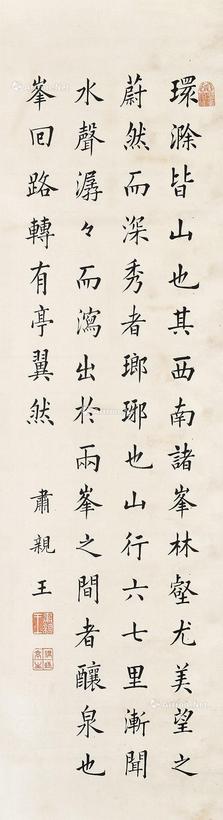 環滁皆山也其西南諸峯林壑尤美望之
蔚然而深秀者瑯琊也山行六七里漸聞
水聲潺々而瀉出於兩峯之間者釀泉也
峯回路轉有亭翼然
肅親王